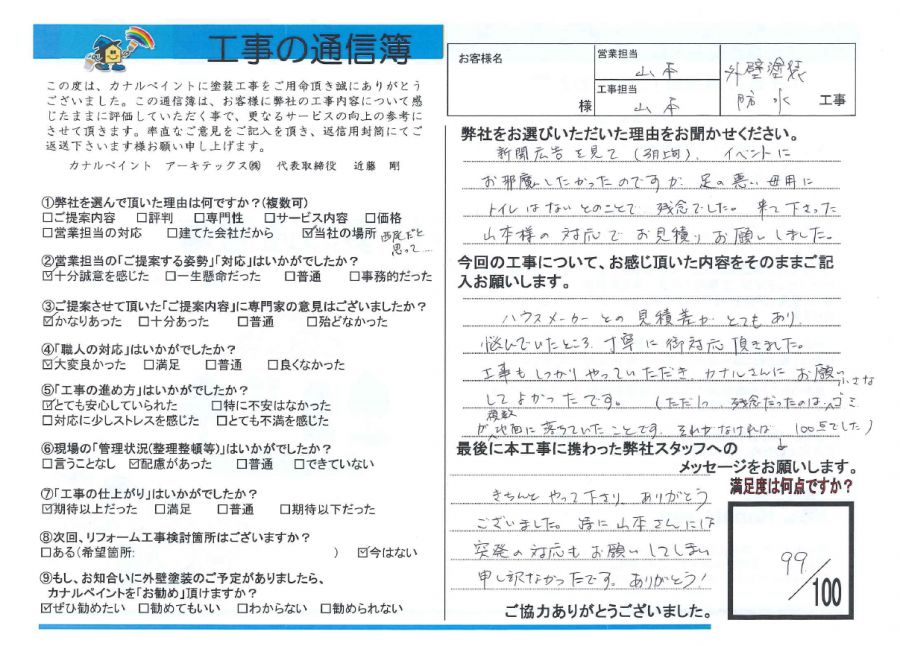 工事の通信簿
この度は、カナルペイントに塗装工事をご用命頂き誠にありがとう
ございました。この通信簿は、お客様に弊社の工事内容について感
じたままに評価していただく事で、更なるサービスの向上の参考に
させて頂きます。率直なご意見をご記入を頂き、返信用封筒にてご
返送下さいます様お願い申し上げます。
カナルペイント アーキテックス㈱ 代表取締役 近藤 剛
①弊社を選んで頂いた理由は何ですか?(複数可)
□ご提案内容 □評判 □専門性 □サービス内容 □価格
□営業担当の対応 □建てた会社だから ☑当社の場所 西尾だと
思って…
②営業担当の「ご提案する姿勢」「対応」はいかがでしたか?
☑十分誠意を感じた □一生懸命だった □普通 □事務的だった
③ご提案させて頂いた「ご提案内容」に専門家の意見はございましたか?
☑かなりあった □十分あった □普通 □殆どなかった
④「職人の対応」はいかがでしたか?
☑大変良かった □満足 □普通 □良くなかった
⑤「工事の進め方」はいかがでしたか?
☑とても安心していられた □特に不安はなかった
□対応に少しストレスを感じた □とても不満を感じた
⑥現場の「管理状況(整理整頓等)」はいかがでしたか?
□言うことなし ☑配慮があった □普通 □できていない
⑦「工事の仕上がり」はいかがでしたか?
☑期待以上だった □満足 □普通 □期待以下だった
⑧次回、リフォーム工事検討箇所はございますか?
□ある(希望箇所: ) ☑今はない
⑨もし、お知合いに外壁塗装のご予定がありましたら、
カナルペイントを「お勧め」頂けますか?
☑ぜひ勧めたい □勧めてもいい □わからない □勧められない
お客様名
様
営業担当
山本
工事担当
山本
外壁塗装
防水 工事
弊社をお選びいただいた理由をお聞かせください。
新聞広告を見て(3月上旬)、イベントに
お邪魔したかったのですが 足の悪い母用に
トイレはないとのことで 残念でした。来て下さった
山本様の対応で お見積り お願いしました。
今回の工事について、お感じ頂いた内容をそのままご記
入お願いします。
ハウスメーカーとの見積差が とてもあり、
悩んでいたところ、丁寧に御対応頂きました。
工事もしっかりやっていただき、カナルさんにお願い
してよかったです。(ただ1つ、残念だったのは、小さなゴミ
が複数地面に落ちていたことです。それがなければ 100点でした)
最後に本工事に携わった弊社スタッフへの
メッセージをお願いします。
きちんと やって下さり ありがとう
ございました。特に山本さんには
突発の対応も お願いしてしまい
申し訳なかったです。ありがとう!
満足度は何点ですか?
99/100
ご協力ありがとうございました。